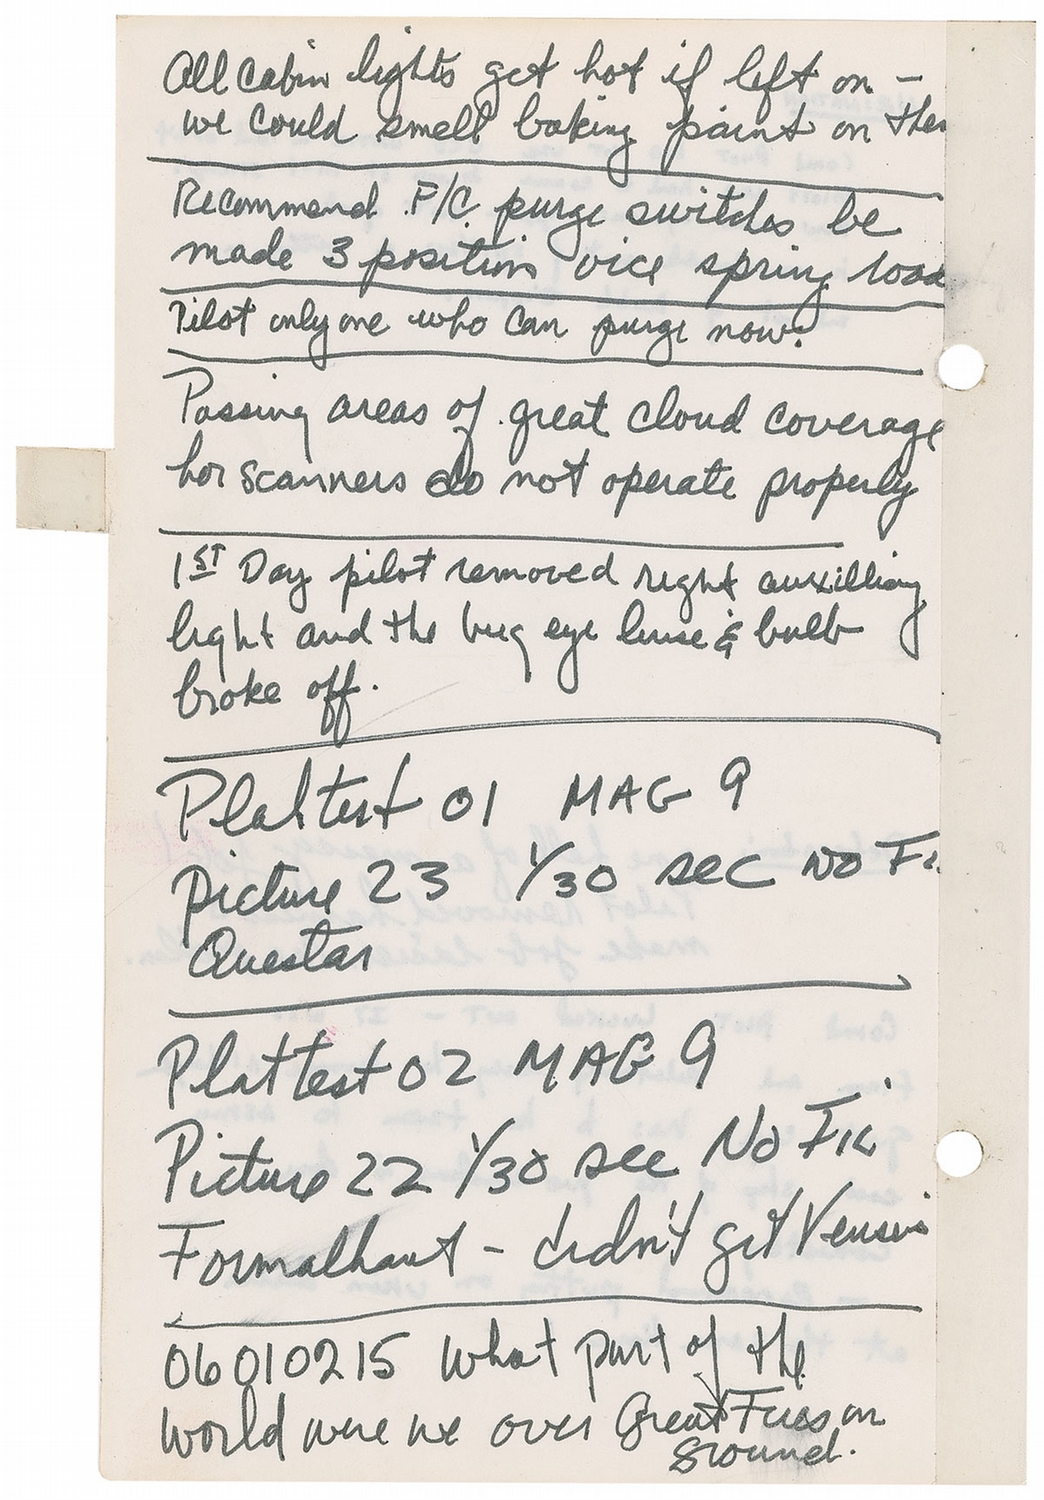 All cabin lights get hot if left on –
we could smell baking paint on them
Recommend F/C purge switches be
made 3 position vice spring load
Pilot only one who can purge now.
Passing areas of great cloud coverage
hor scanners do not operate properly
1ST Day pilot removed right auxilliary
light and the bug eye lense & bulb
broke off.
Plattest 01 MAG 9
picture 23 1/30 sec NO
Questar
Plattest 02 MAG 9
Picture 22 1/30 sec No
Formalhaut – didn't get
06010215 What part of the
world were we over Great Fires on
ground.